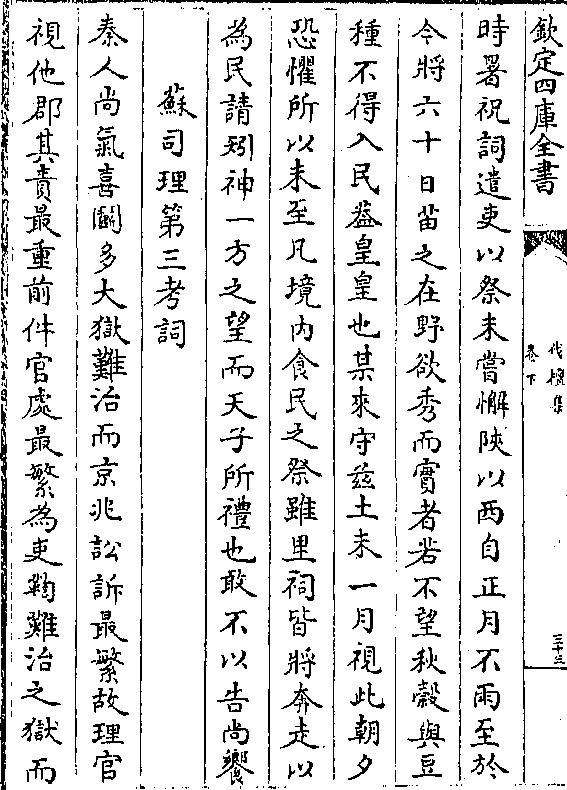 欽定四庫全書
伐檀集
卷下
三十三
時署祝詞遣吏以祭未嘗懈陜以西自正月不雨至於
今將六十日苗之在野欲秀而實者若不望秋穀與豆
種不得入民葢皇皇也某來守兹土未一月視此朝夕
恐懼所以未至凡境内食民之祭雖里祠皆將奔走以
為民請矧神一方之望而天子所禮也敢不以告尚饗
蘇司理第三考詞
秦人尚氣喜鬭多大獄難治而京兆訟訴最繁故理官
視他郡其責最重前件官處最繁為吏鞫難治之獄而